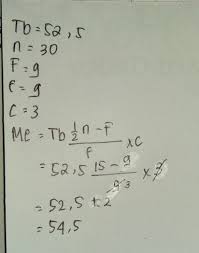 Tb = 52,5
n = 30
F = 9
f = 9
C = 3
Me = Tb (1/2 n - F)/f × C
= 52,5 (15 - 9)/9 3 × 3
= 52,5 + 2
= 54,5